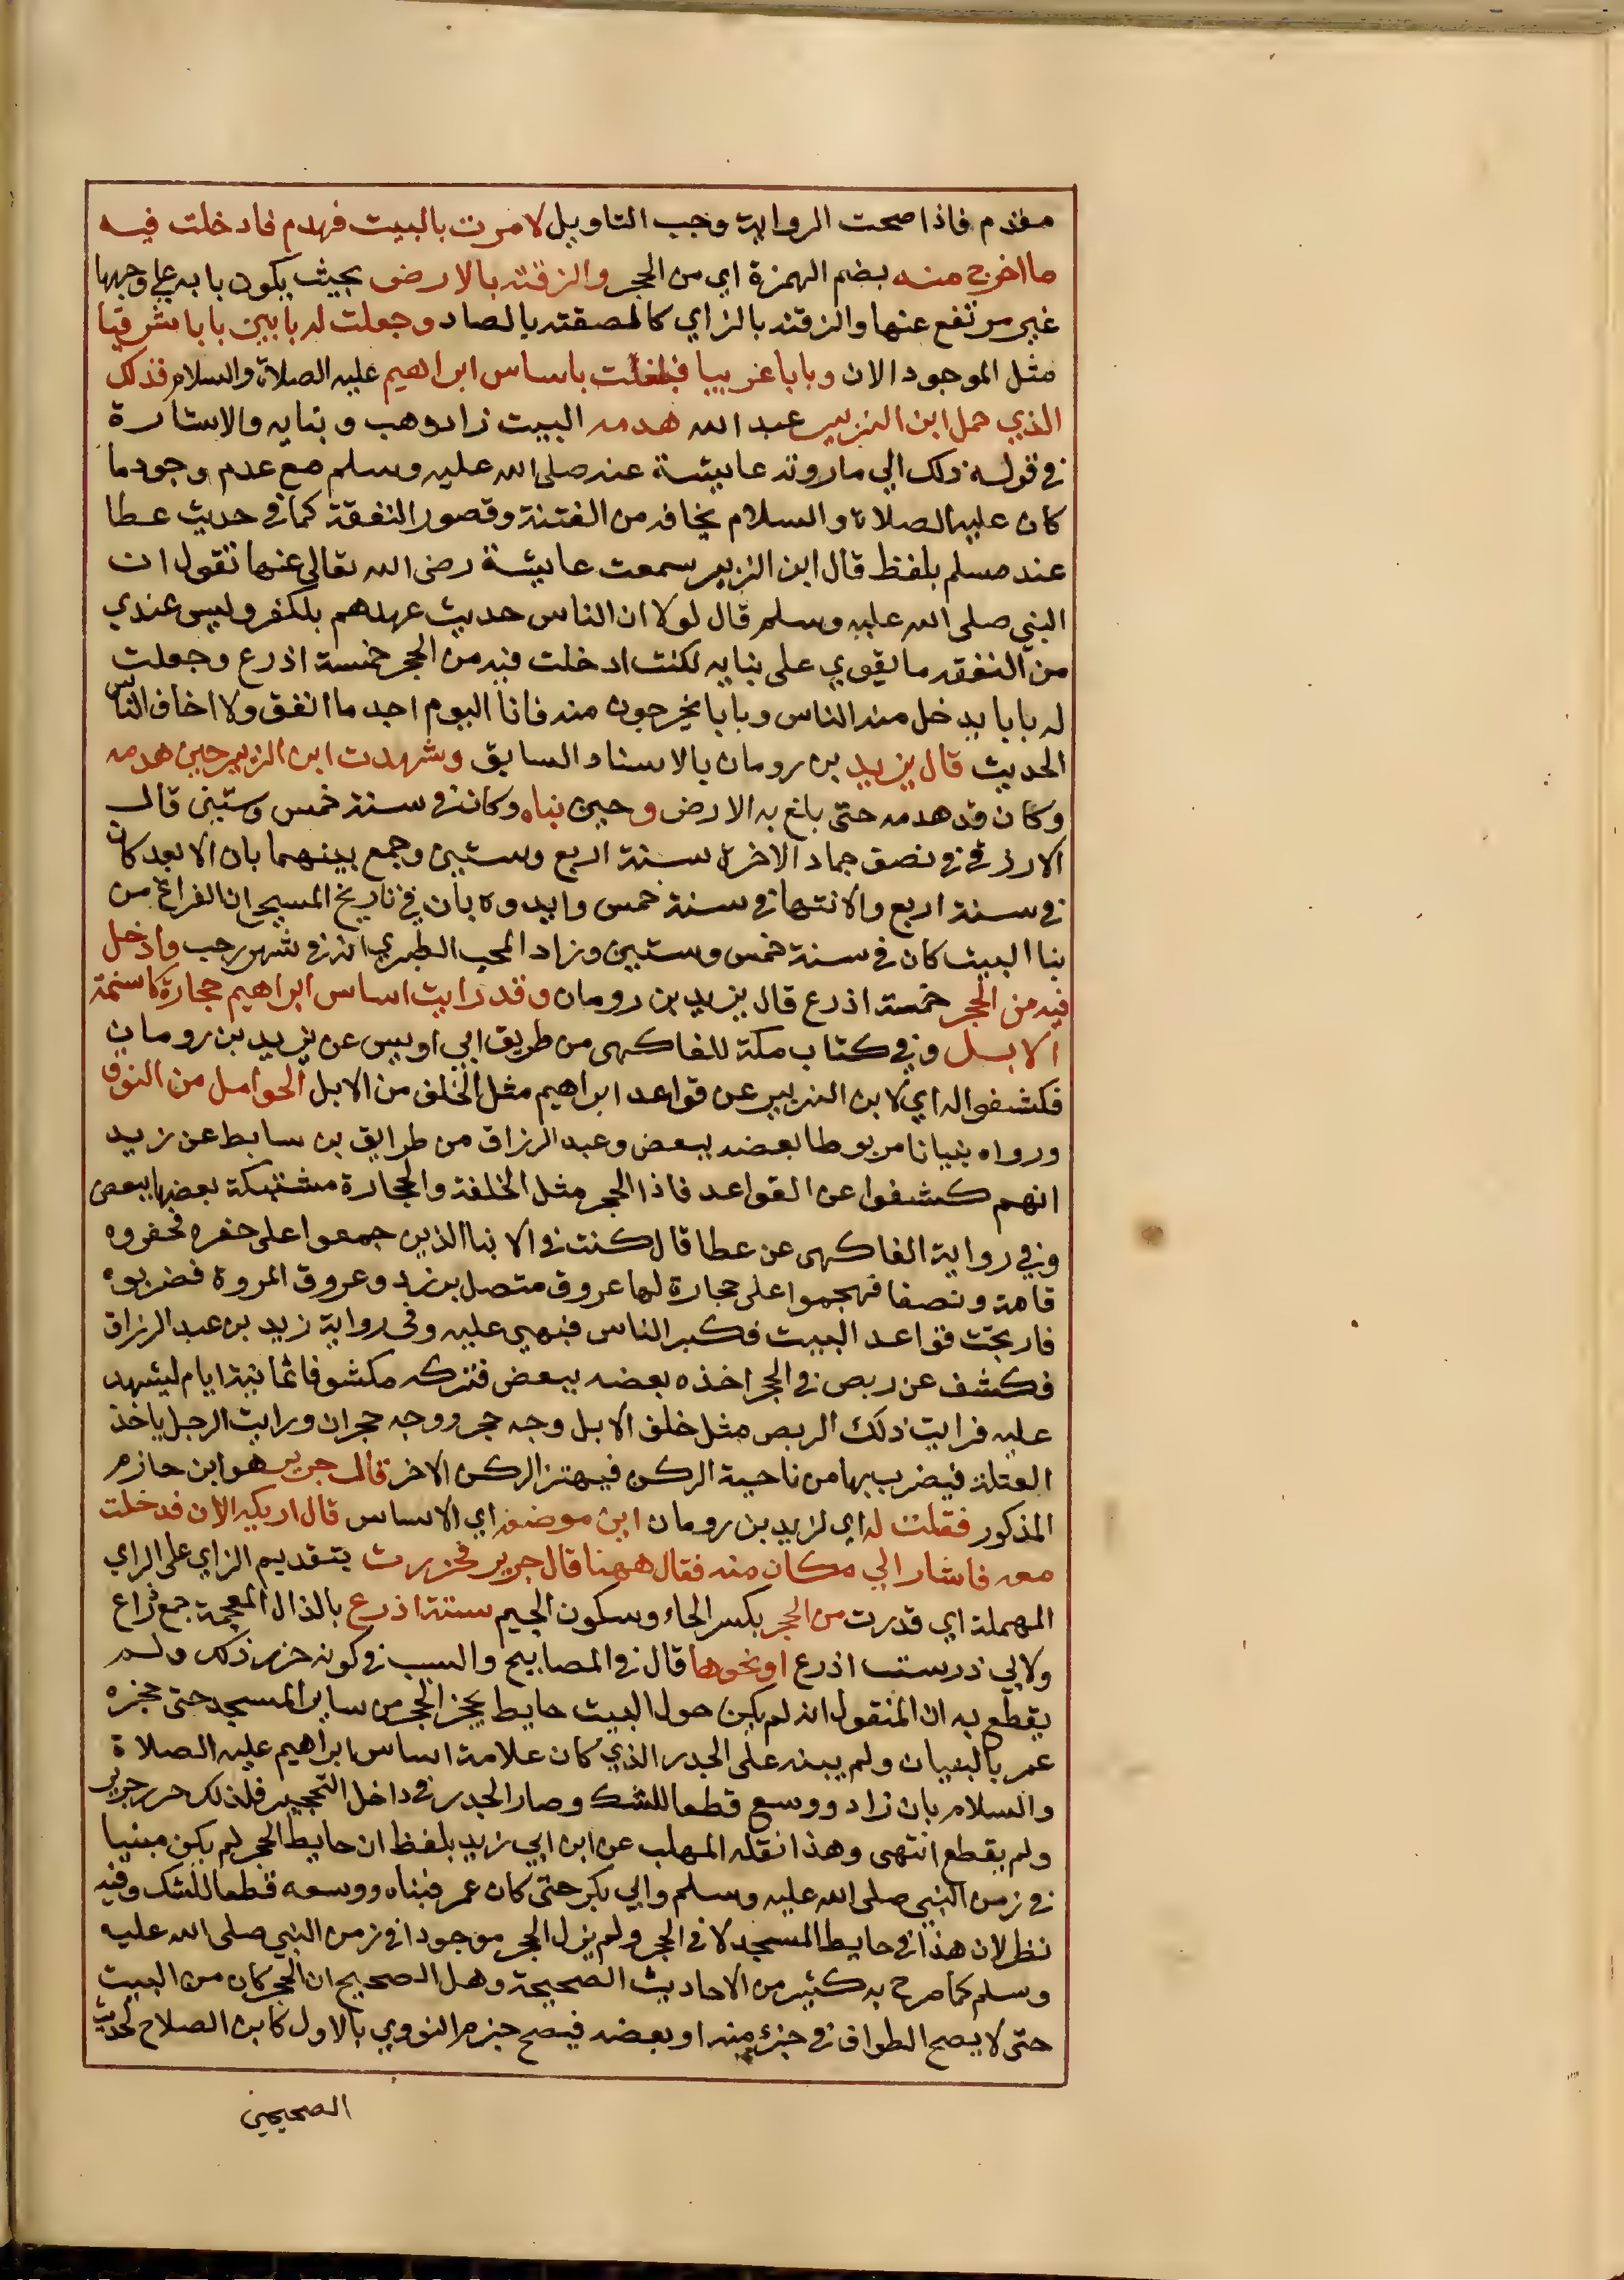 مقدم فاذا صحت الرواية وجب التاويل لامرت بالبيت فهدم فادخلت فيه
ما اخرج منه بضم الهمزة اي من الحجر والزقته بالارض بحيث يكون بابه على وجهها
غير مرتفع عنها والزقته بالزاي كالصقته بالصاد وجعلت له بابين بابا شرقيا
مثل الموجود الان وبابا غربيا فبلغت باساس ابراهيم عليه الصلاة والسلام فذلك
الذي حمل ابن الزبير عبد الله هدمه البيت زاد وهب وبنايه والاشارة
في قوله ذلك الي ما روته عايشة عنه صلى الله عليه وسلم مع عدم وجود ما
كان عليه الصلاة والسلام يخافه من الفتنة وقصور النفقة كما في حديث عطا
عند مسلم بلفظ قال ابن الزبير سمعت عايشة رضى الله تعالى عنها تقول ان
النبي صلى الله عليه وسلم قال لولا ان الناس حديث عهدهم بلكفر وليس عندي
من النفقه ما يقوي على بنايه لكنت ادخلت فيه من الحجر خمسة اذرع وجعلت
له بابا يدخل منه الناس وبابا يخرجون منه فانا اليوم اجد ما انفق ولا اخاف الناس
الحديث قال يزيد بن رومان بالاسناد السابق وشهدت ابن الزبير حين هدمه
وكان قد هدمه حتى بلغ به الارض وحين بناه وكان في سنة خمس وستين قال
الازرقي في نصف جماد الاخرة سنة اربع وستين وجمع بينهما بان الابعد كان
في سنة اربع والانتها في سنة خمس وايدوه بان في تاريخ المسبحي ان الفراغ من
بنا البيت كان في سنة خمس وستين وزاد المحب الطبري انه في شهر رجب وادخل
فيه من الحجر خمسة اذرع قال يزيد بن رومان وقد رايت اساس ابراهيم حجارة كاسنمة
الابل وفي كتاب مكة للفاكهى من طريق ابي اويس عن يزيد بن رومان
فكشفوا له اي لابن الزبير عن قواعد ابراهيم مثل الخلف من الابل الحوامل من النوق
ورواه بنيانا مربوطا بعضه ببعض وعبد الرزاق من طريق بن سابط عن زيد
انهم كشفوا عن القواعد فاذا الحجر مثل الخلفة والحجارة مشتبكة بعضها ببعض
وفي رواية الفاكهى عن عطا قال كنت في الابنا الذين جمعوا على حفره فحفروه
قامة ونصفا فهجموا على حجارة لها عروق متصل بزرد وعروق المروة فضربوه
فارتجت قواعد البيت فكبر الناس فبنهي عليه وفي رواية زيد بن عبد الرزاق
فكشف عن ربص في الحجر اخذه بعضه ببعض فتركه مكشوفا ثمانية ايام ليشهد
عليه فرايت ذلك الربص مثل خلف الابل وجه حجر ووجه حجران ورايت الرجل ياخذ
العتلة فيضرب بها من ناحية الركن فيهتز الركن الاخر قال جرير هو ابن حازم
المذكور فقلت له اي لزيد بن رومان اين موضعه اي الاساس قال اريكه الان فدخلت
معه فاشار الي مكان منه فقال ههنا قال جرير فحزرت بتقديم الزاي على الراي
المهملة اي قدرت من الحجر بكسر الحاء وسكون الجيم ستة اذرع بالذال المعجمة جمع ذراع
ولابي ذر ست اذرع او نحوها قال في المصابيح والسبب في كونه حزر ذلك ولم
يقطع به ان المنقول انه لم يكن حول البيت حايط يحجز الحجر من ساير المسجد حتى حجزه
عمر بالبنيان ولم يبنه على الجدر الذي كان علامة اساس ابراهيم عليه الصلاة
والسلام بان زاد ووسع قطعا للشك وصار الجدر في داخل التحجير فلذلك حرر جرير
ولم يقطع انتهى وهذا نقله المهلب عن ابن ابي زيد بلفظ ان حايط الحجر لم يكن مبنيا
في زمن النبي صلى الله عليه وسلم وابي بكر حتى كان عمر فبناه ووسعه قطعا للشك وفيه
نظر لان هذا في حايط المسجد لا في الحجر ولم يزل الحجر موجودا في زمن النبي صلى الله عليه
وسلم كما صرح به كثير من الاحاديث الصحيحة وهل الصحيح ان الحجر كان من البيت
حتى لا يصح الطواف في جزء منه او بعضه فيصح جزم النووي بالاول كابن الصلاح لحديث
الصحيحين